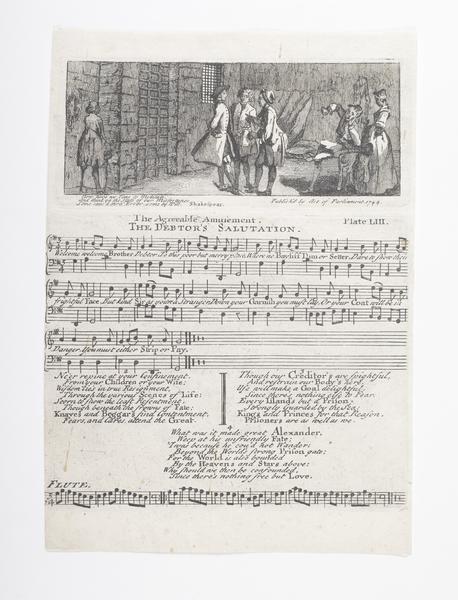 Here have we Time to Meditate,
And think on the State of our Misfortunes.
Shakespear.
Publish'd by Act of Parliament 1744.
The Agreeable Amusement.
Plate LIII.
THE DEBTOR'S SALUTATION.
Welcome welcome Brother Debtor, To this poor but merry place, Where no Bayliff Dun or Setter, Dare to show their
frightful Face. But kind Sir as you're a Stranger, Down your Garnish you must lay, Or your Coat will be in
Danger, You must either Strip or Pay.
Ne'er repine at your Confinement
From your Children or your Wife;
Wisdom lies in true Resignment,
Through the various Scenes of Life:
Scorn to show the least Resentment,
Though beneath the Frowns of Fate;
Knaves and Beggars find Contentment,
Fears, and Cares, attend the Great.
3
Though our Creditor's are spightful,
And restrain our Body's here,
Use will make a Goal delightful,
Since there's nothing else to Fear.
Every Island's but a Prison,
Strongly Guarded by the Sea;
Kings and Princes for that Reason,
Prisoners are as well as we.
4
What was it made great Alexander,
Weep at his unfriendly Fate;
'Twas because he cou'd not Wander,
Beyond the World's strong Prison gate;
For the World is also bounded
By the Heavens and Stars above:
Why should we then be confounded,
Since there's nothing free but Love.
FLUTE.